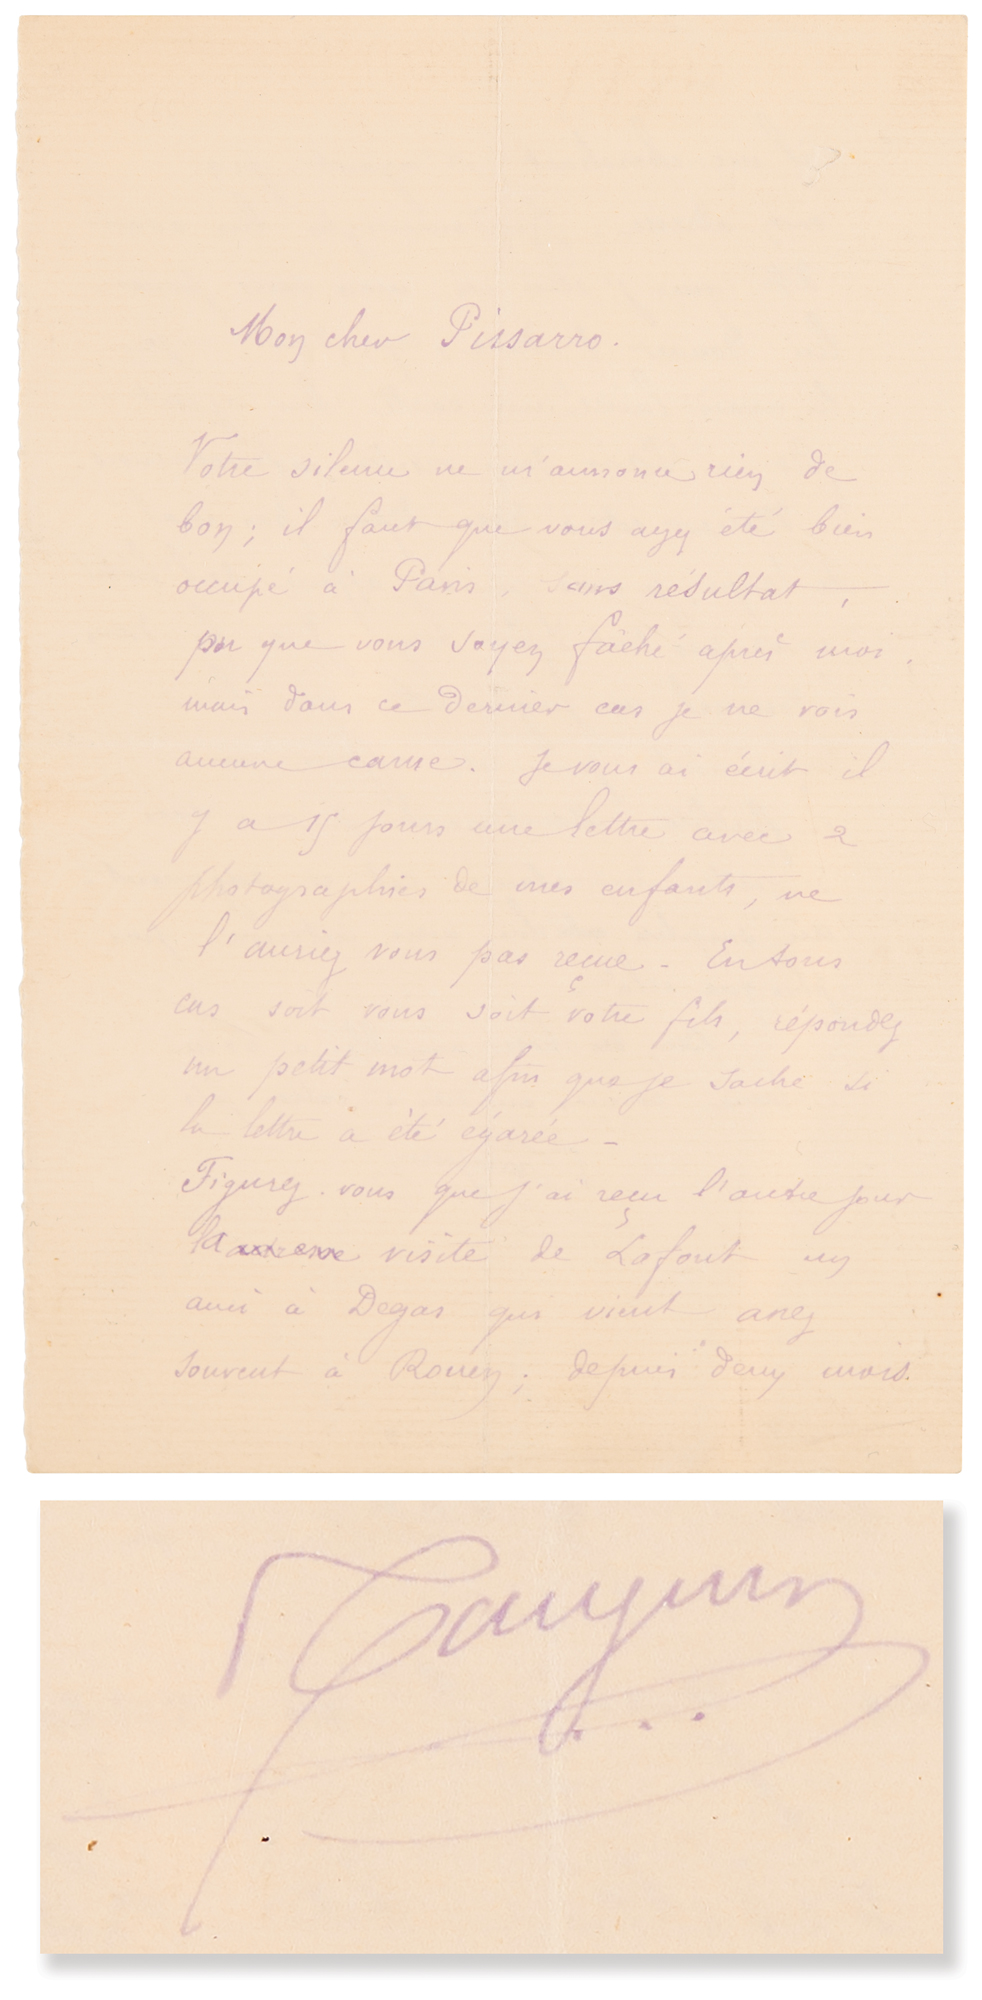 Mon cher Pissarro.
Votre silence ne m'annonce rien de
bon; il faut que vous ayez été bien
occupé à Paris, sans résultat,
ou que vous soyez fâché après moi,
mais dans ce dernier cas je ne vois
aucune cause. Je vous ai écrit il
y a 15 jours une lettre avec 2
photographies de mes enfants, ne
l'auriez vous pas reçue - En tous
cas soit vous soit votre fils, répondez
un petit mot afin que je sache si
la lettre a été égarée -
Figurez-vous que j'ai reçu l'autre jour
la visite de Lafont un
ami à Degas qui vient assez
souvent à Rouen; depuis deux mois.
PGauguin